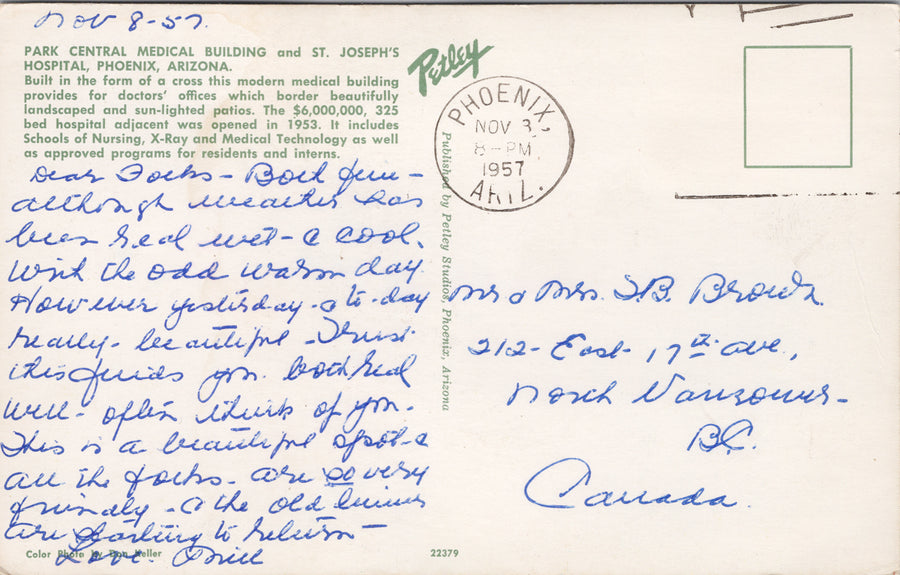 Nov 8-57.
PARK CENTRAL MEDICAL BUILDING and ST. JOSEPH'S
HOSPITAL, PHOENIX, ARIZONA.
Built in the form of a cross this modern medical building
provides for doctors' offices which border beautifully
landscaped and sun-lighted patios. The $6,000,000, 325
bed hospital adjacent was opened in 1953. It includes
Schools of Nursing, X-Ray and Medical Technology as well
as approved programs for residents and interns.
Dear Folks - Both fine -
although weather has
been real wet - & cool.
With the odd warm day.
However yesterday - & to-day
really - beautiful - Trust
this finds you both real
well - often think of you.
This is a beautiful spot - &
all the folks - are so very
friendly - & the old
are starting to return -
Love.
Color Photo by Don Keller
22379
Petley
Published by Petley Studios, Phoenix, Arizona
PHOENIX,
NOV 3,
8-PM
1957
ARIZ.
Mr & Mrs. Brown
212 - East - 17th Ave.,
North Vancouver -
B.C.
Canada.